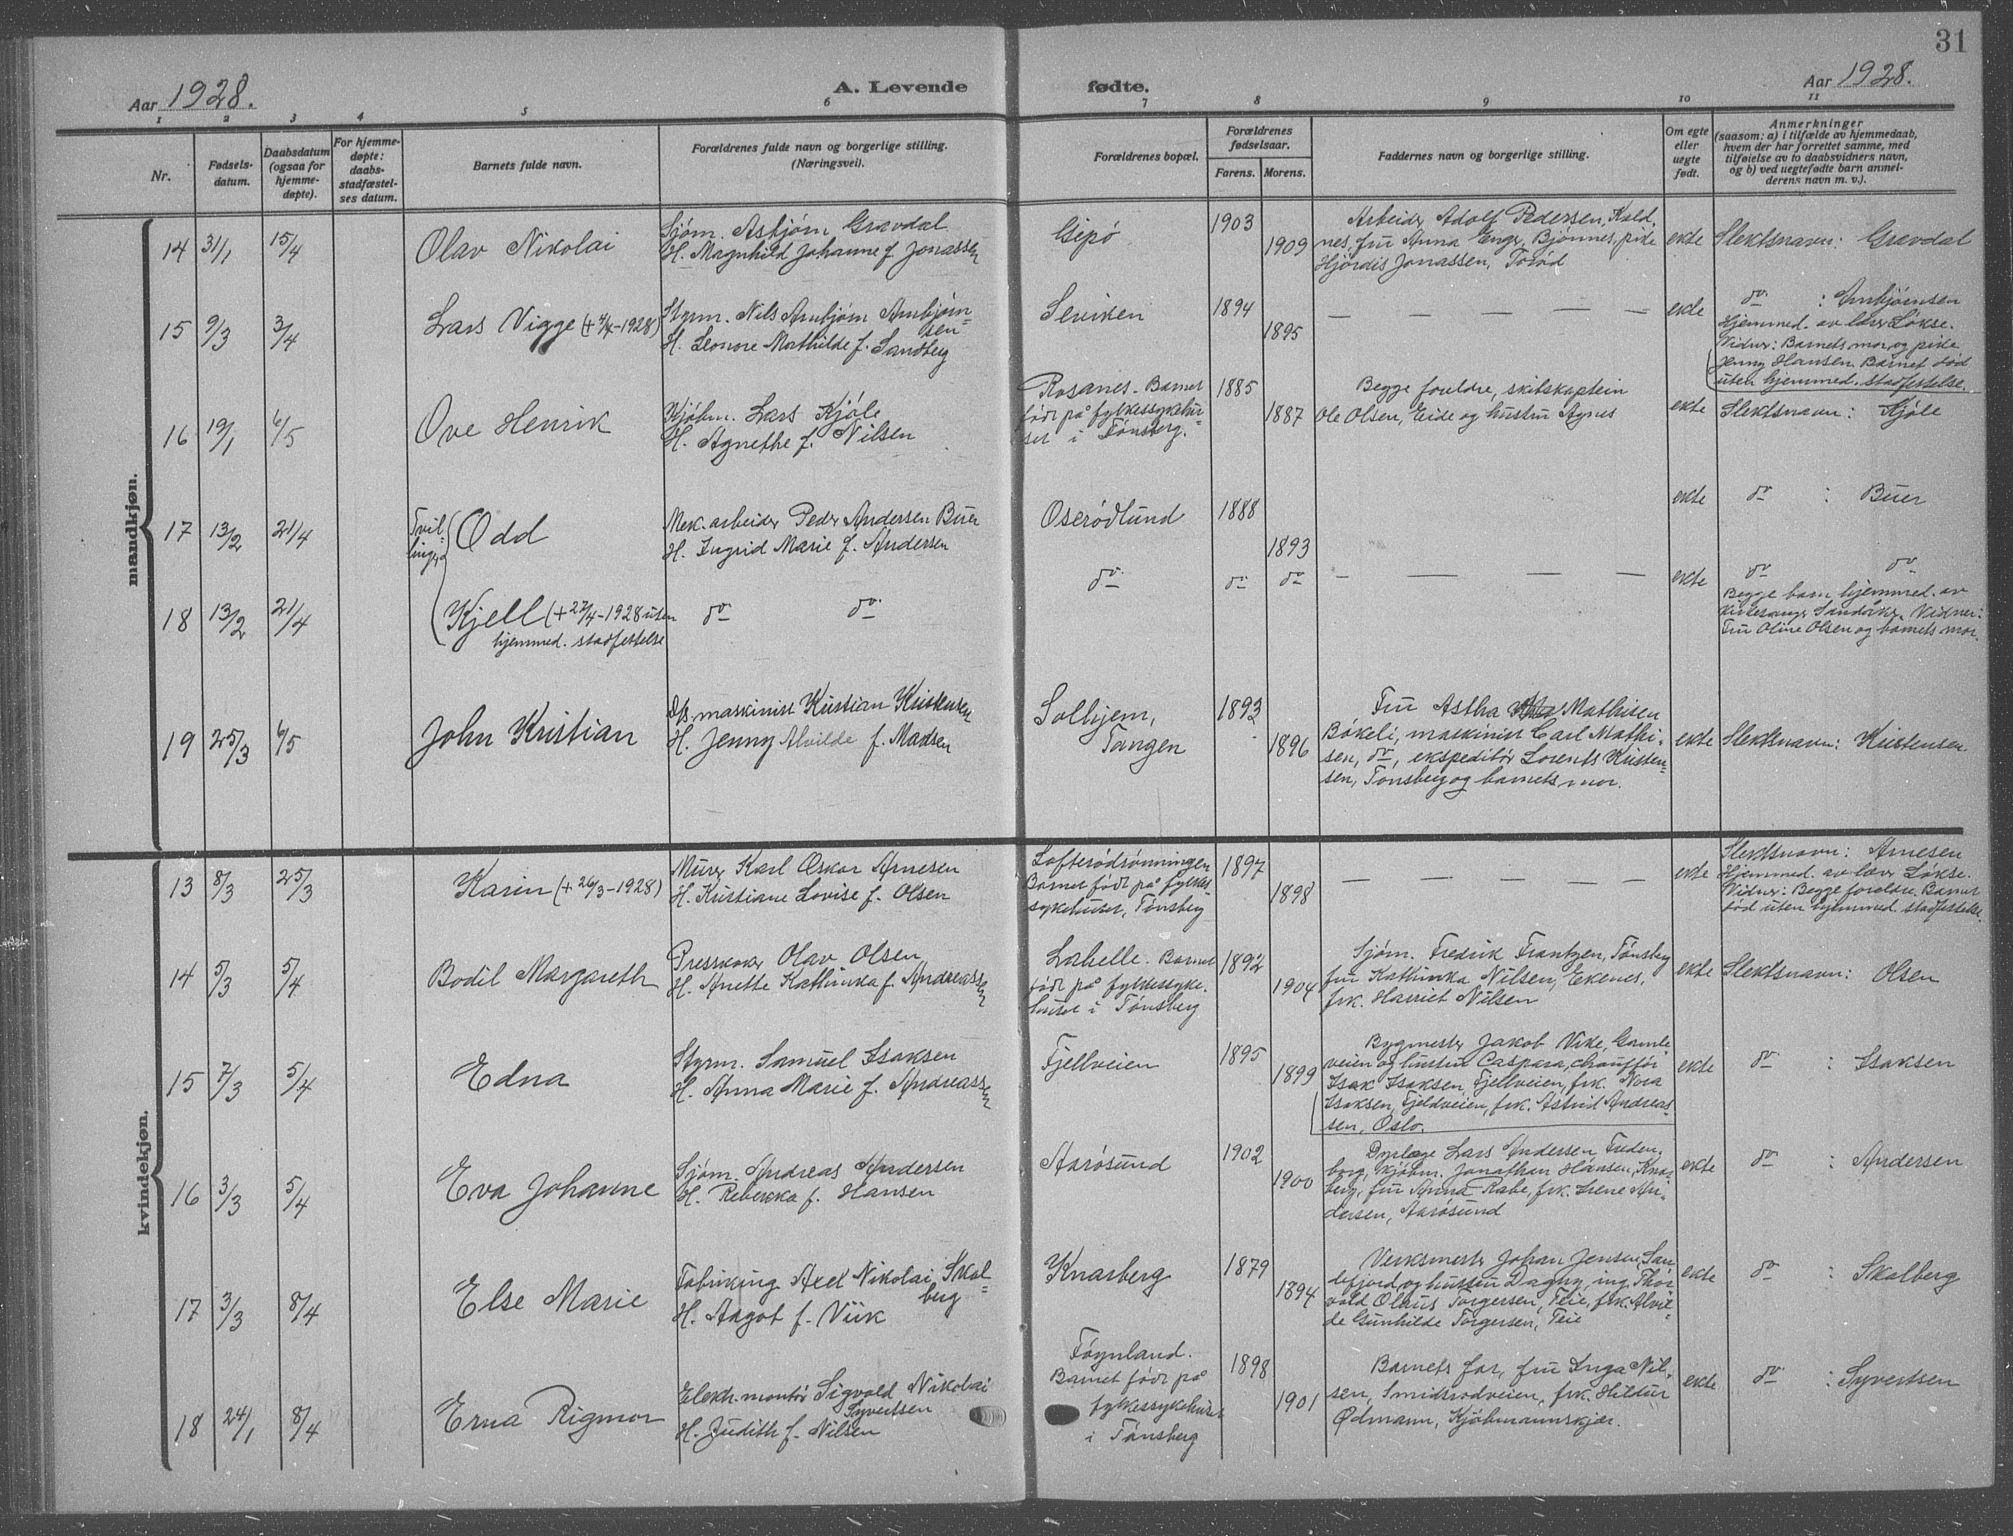 31
Aar 1928.
A. Levende fødte.
Aar 1928.
1 2 3 4 5 6 7 8 9 10 11
Nr.
Fødsels-
datum.
Daabsdatum
(ogsaa for
hjemme-
døpte).
For hjemme-
døpte:
daabs-
stadfæstel-
ses datum.
Barnets fulde navn.
Forældrenes fulde navn og borgerlige stilling.
(Næringsvei).
Forældrenes bopæl.
Forældrenes
fødselsaar.
Farens. Morens.
Faddernes navn og borgerlige stilling.
Om egte
eller
uegte
født.
Anmerkninger
(saasom: a) i tilfælde av hjemmedaab,
hvem der har forrettet samme, med
tilføielse av to daabsvidners navn,
og b) ved uegtefødte barn anmel-
derens navn m. v.).
mandkjøn.
14 31/1 15/4
Olav Nikolai
Sjøm. Asbjørn Gravdal
H. Magnhild Johanne f. Jonassen
Gipø
1903
1909
Arbeider Adolf Pedersen, Kald-
nes, fru Anna Enge, Bjønnes, pike
Hjördis Jonassen, Torød
ekte
Slektsnavn: Gravdal
15 9/3 3/4
Lars Vigge (+ 4/4-1928)
Styrm. Nils Arnbjørn Arnbjørn-
sen
H. Leonore Mathilde f. Sandberg
Seviken
1894
1895
— — — — —
ekte
do : Arnbjørnsen
Hjemmed. av læge Løkse.
Vidner: Barnets mor og pike
Jenny Hansen. Barnet død
uten hjemmed. stadfestelse.
16 19/1 6/5
Ove Henrik
Kjøbm. Lars Kjøle
H. Agnethe f. Nilsen
Rosanes. Barnet
født på fylkessykehu-
set i Tønsberg.
1885
1887
Begge foreldre, skibskaptein
Ole Olsen, Eide og hustru Agnes
ekte
Slektsnavn: Kjøle
17 13/2 21/4
Tvil-
linger
Odd
Mek. arbeider Peder Andersen Buer
H. Ingrid Marie f. Andersen
Oserødlund
1888
1893
ekte
do : Buer
18 13/2 21/4
Kjell (+ 27/4-1928 uten
hjemmed. stadfestelse
do do
do
do do
— — — —
ekte
do do
Begge barn hjemmed. av
kirkesanger Sandåker. Vidner:
Fru Oline Olsen og barnets mor.
19 25/3 6/5
John Kristian
D/s. maskinist Kristian Kristensen
H. Jenny Alvilde f. Madsen
Solhjem,
Tangen
1893
1896
Fru Astha Mathisen
Bøkeli, maskinist Carl Mathi-
sen, do, ekspeditør Lorents Kristen-
sen, Tønsberg og barnets mor.
ekte
Slektsnavn: Kristensen
kvindekjøn.
13 8/3 25/3
Karin (+ 26/3-1928)
Murer Karl Oskar Arnesen
H. Kristiane Lovise f. Olsen
Lofterødrønningen
Barnet født på fylkes-
sykehuset, Tønsberg
1897
1898
— — — — —
ekte
Slektsnavn: Arnesen
Hjemmed. av læge Løkse.
Vidner: Begge foreldre. Barnet
død uten hjemmed. stadfestelse.
14 5/3 5/4
Bodil Margareth
Presskoker Olav Olsen
H. Anette Kathinka f. Andreassen
Labelle. Barnet
født på fylkessyke-
huset i Tønsberg
1892
1904
Sjøm. Fredrik Frantzen, Tønsberg
fru Kathinka Nilsen, Ekenes,
frk. Harriet Nilsen
ekte
Slektsnavn: Olsen
15 7/3 5/4
Edna
Styrm. Samuel Isaksen
H. Anna Marie f. Andreassen
Fjellveien
1895
1899
Bygmester Jakob Vike, Gamle-
veien og hustru Caspara, chauffør
Isak Isaksen, Fjellveien, frk. Nora
Isaksen, Fjeldveien, frk. Astrid Andreas-
sen, Oslo.
ekte
do : Isaksen
16 3/3 5/4
Eva Johanne
Sjøm. Andreas Andersen
H. Rebekka f. Hansen
Aarøsund
1902
1900
Lars Andersen, Freden-
borg, kjøbm. Jonathan Hansen, Knar-
berg, fru Anna Rabe, frk. Irene An-
dersen, Aarøsund
ekte
do : Andersen
17 3/3 8/4
Else Marie
Axel Nikolai Skal-
berg
H. Aagot f. Viik
Knarberg
1879
1894
Verksmester Johan Jensen, San-
defjord, og hustru Dagny, ing. Thor-
vald Olaus Torgersen, Teie, frk. Alvil-
de Gunhilde Torgersen, Teie
ekte
do : Skalberg
18 24/1 8/4
Erna Rigmor
Elektr. montør Sigvald Nikolai
Syvertsen
H. Judith f. Nilsen
Føynland.
Barnet født på
fylkessykehuset
i Tønsberg
1898
1901
Barnets far, fru Inga Nil-
sen, Smidsrødveien, frk. Hildur
Ødmann, Kjøbmannskjær.
ekte
do : Syvertsen